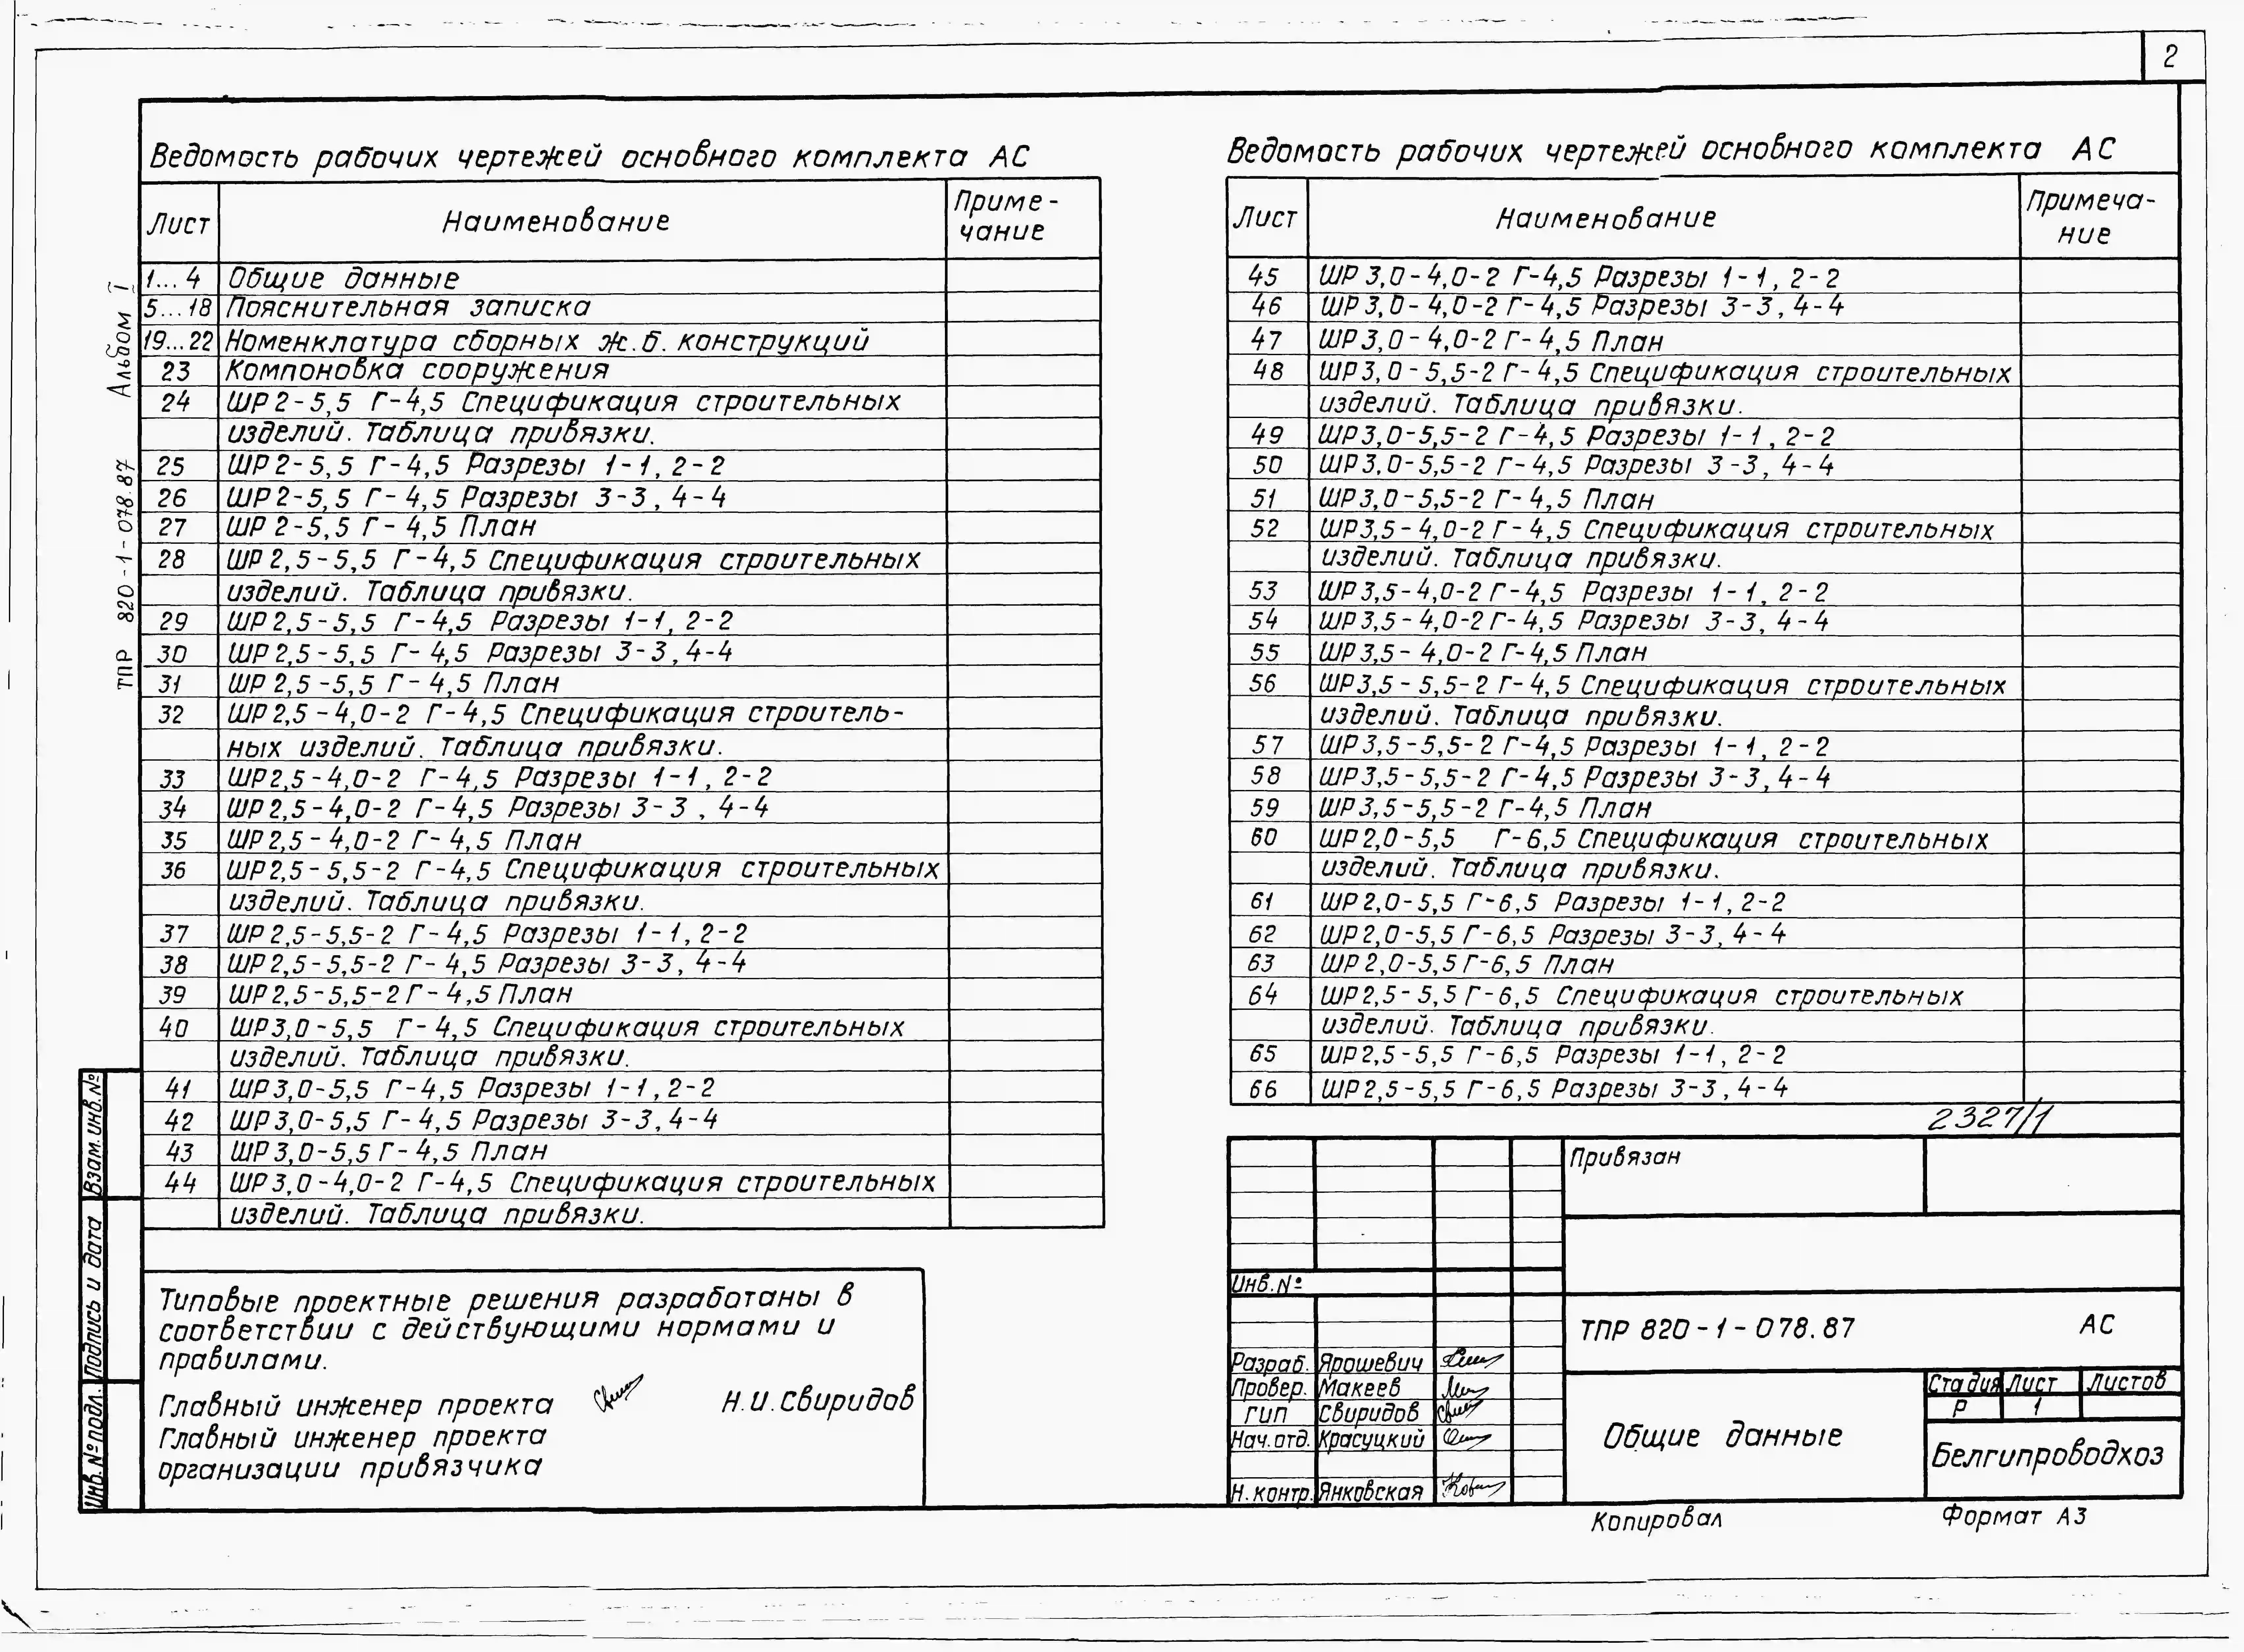 2
Ведомость рабочих чертежей основного комплекта АС
Лист Наименование Приме-
чание
1...4 Общие данные
5...18 Пояснительная записка
19...22 Номенклатура сборных ж.б. конструкций
23 Компоновка сооружения
24 ШР 2-5,5 Г-4,5 Спецификация строительных
изделий. Таблица привязки.
25 ШР 2-5,5 Г-4,5 Разрезы 1-1, 2-2
26 ШР 2-5,5 Г-4,5 Разрезы 3-3, 4-4
27 ШР 2-5,5 Г-4,5 План
28 ШР 2,5-5,5 Г-4,5 Спецификация строительных
изделий. Таблица привязки.
29 ШР 2,5-5,5 Г-4,5 Разрезы 1-1, 2-2
30 ШР 2,5-5,5 Г-4,5 Разрезы 3-3, 4-4
31 ШР 2,5-5,5 Г-4,5 План
32 ШР 2,5-4,0-2 Г-4,5 Спецификация строитель-
ных изделий. Таблица привязки.
33 ШР 2,5-4,0-2 Г-4,5 Разрезы 1-1, 2-2
34 ШР 2,5-4,0-2 Г-4,5 Разрезы 3-3, 4-4
35 ШР 2,5-4,0-2 Г-4,5 План
36 ШР 2,5-5,5-2 Г-4,5 Спецификация строительных
изделий. Таблица привязки.
37 ШР 2,5-5,5-2 Г-4,5 Разрезы 1-1, 2-2
38 ШР 2,5-5,5-2 Г-4,5 Разрезы 3-3, 4-4
39 ШР 2,5-5,5-2 Г-4,5 План
40 ШР 3,0-5,5 Г-4,5 Спецификация строительных
изделий. Таблица привязки.
41 ШР 3,0-5,5 Г-4,5 Разрезы 1-1, 2-2
42 ШР 3,0-5,5 Г-4,5 Разрезы 3-3, 4-4
43 ШР 3,0-5,5 Г-4,5 План
44 ШР 3,0-4,0-2 Г-4,5 Спецификация строительных
изделий. Таблица привязки.
Типовые проектные решения разработаны в
соответствии с действующими нормами и
правилами.
Главный инженер проекта Н.И.Свиридов
Главный инженер проекта
организации привязчика
ТПР 820-1-078.87 Альбом I
Взам. инв. №
Подпись и дата
Инв. № подл.
Ведомость рабочих чертежей основного комплекта АС
Лист Наименование Примеча-
ние
45 ШР 3,0-4,0-2 Г-4,5 Разрезы 1-1, 2-2
46 ШР 3,0-4,0-2 Г-4,5 Разрезы 3-3, 4-4
47 ШР 3,0-4,0-2 Г-4,5 План
48 ШР 3,0-5,5-2 Г-4,5 Спецификация строительных
изделий. Таблица привязки.
49 ШР 3,0-5,5-2 Г-4,5 Разрезы 1-1, 2-2
50 ШР 3,0-5,5-2 Г-4,5 Разрезы 3-3, 4-4
51 ШР 3,0-5,5-2 Г-4,5 План
52 ШР 3,5-4,0-2 Г-4,5 Спецификация строительных
изделий. Таблица привязки.
53 ШР 3,5-4,0-2 Г-4,5 Разрезы 1-1, 2-2
54 ШР 3,5-4,0-2 Г-4,5 Разрезы 3-3, 4-4
55 ШР 3,5-4,0-2 Г-4,5 План
56 ШР 3,5-5,5-2 Г-4,5 Спецификация строительных
изделий. Таблица привязки.
57 ШР 3,5-5,5-2 Г-4,5 Разрезы 1-1, 2-2
58 ШР 3,5-5,5-2 Г-4,5 Разрезы 3-3, 4-4
59 ШР 3,5-5,5-2 Г-4,5 План
60 ШР 2,0-5,5 Г-6,5 Спецификация строительных
изделий. Таблица привязки.
61 ШР 2,0-5,5 Г-6,5 Разрезы 1-1, 2-2
62 ШР 2,0-5,5 Г-6,5 Разрезы 3-3, 4-4
63 ШР 2,0-5,5 Г-6,5 План
64 ШР 2,5-5,5 Г-6,5 Спецификация строительных
изделий. Таблица привязки.
65 ШР 2,5-5,5 Г-6,5 Разрезы 1-1, 2-2
66 ШР 2,5-5,5 Г-6,5 Разрезы 3-3, 4-4
2327/1
Привязан
Инв. №
ТПР 820-1-078.87 АС
Разраб. Ярошевич
Провер. Макеев
ГИП Свиридов
Нач. отд. Красуцкий
Н. контр. Янковская
Общие данные
Стадия Лист Листов
Р 1
Белгипроводхоз
Копировал Формат А3